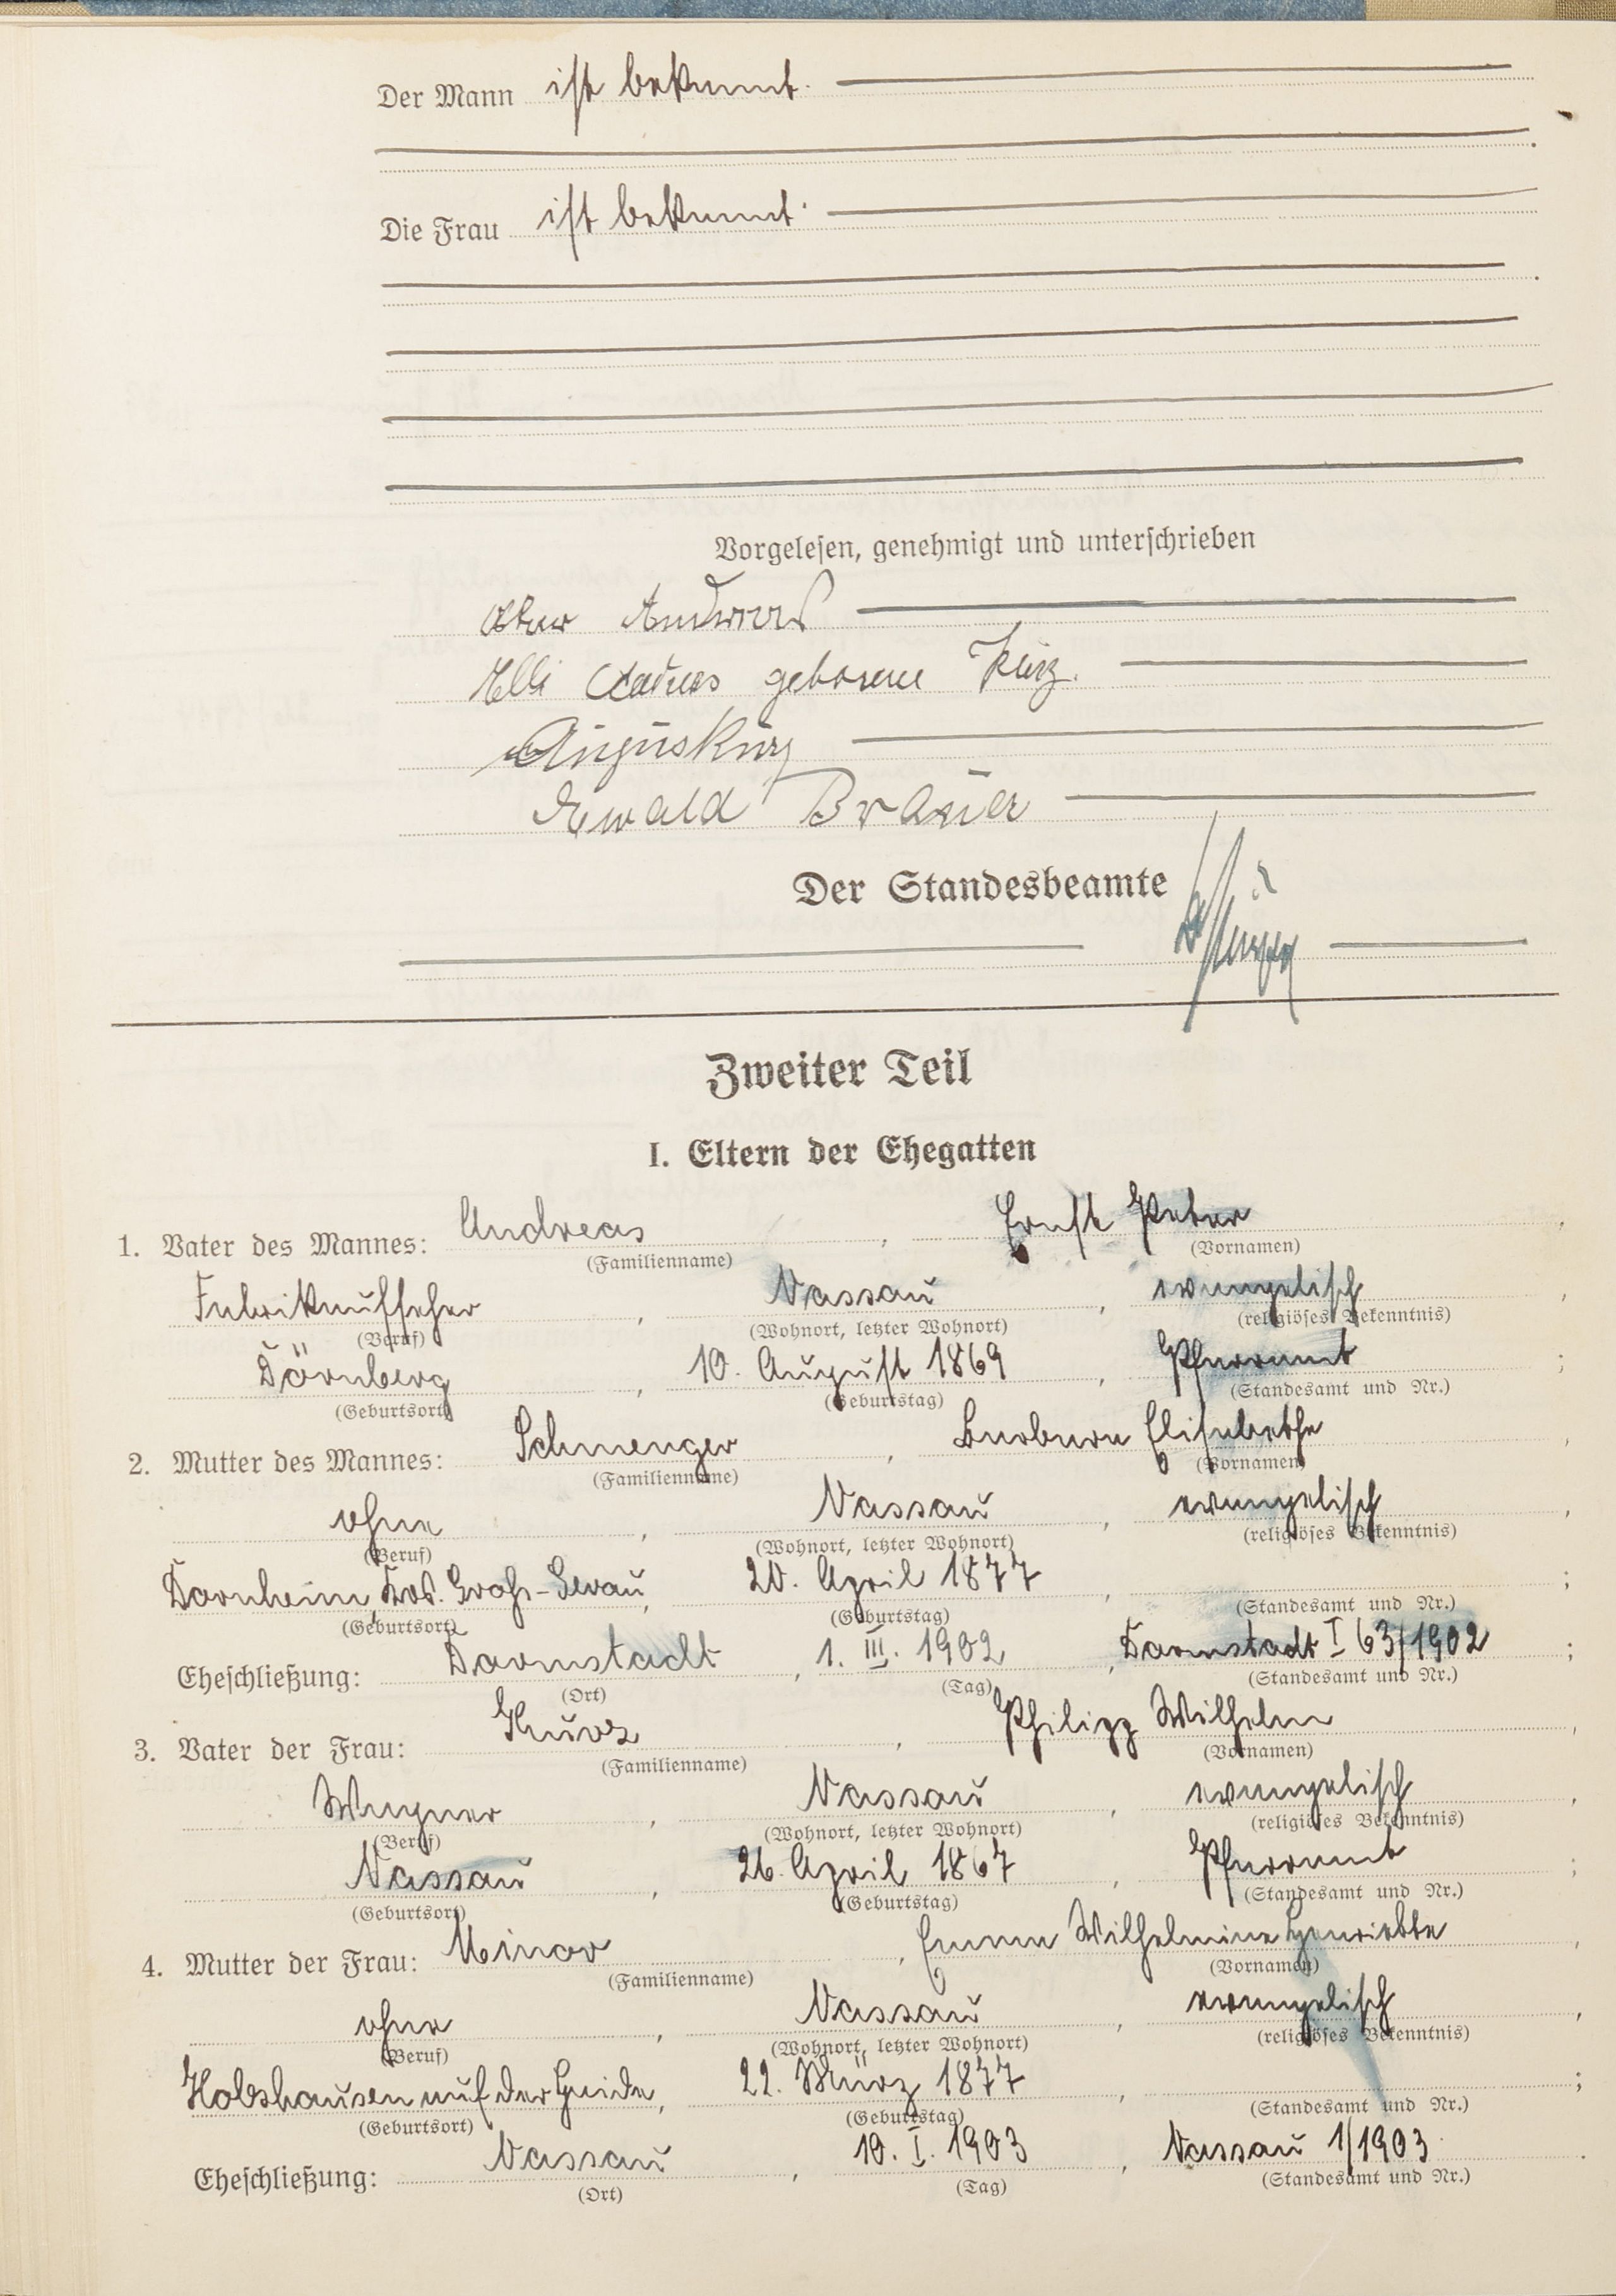 Der Mann ist bekannt.
Die Frau ist bekannt.
Vorgelesen, genehmigt und unterschrieben
Andreas
Elli Andreas geborene Kurz.
August Kurz
Ewald Bräuer
Der Standesbeamte
Zweiter Teil
I. Eltern der Ehegatten
1. Vater des Mannes: Andreas, Ernst Peter,
(Familienname) (Vornamen)
Fabrikaufseher, Nassau, evangelisch,
(Beruf) (Wohnort, letzter Wohnort) (religiöses Bekenntnis)
Dörnberg, 10. August 1869, Pfarramt;
(Geburtsort) (Geburtstag) (Standesamt und Nr.)
2. Mutter des Mannes: Schmenger, Barbara Elisabethe,
(Familienname) (Vornamen)
ohne, Nassau, evangelisch,
(Beruf) (Wohnort, letzter Wohnort) (religiöses Bekenntnis)
Dornheim, Krs. Groß-Gerau, 20. April 1877, ;
(Geburtsort) (Geburtstag) (Standesamt und Nr.)
Eheschließung: Darmstadt, 1. III. 1902, Darmstadt I 63/1902;
(Ort) (Tag) (Standesamt und Nr.)
3. Vater der Frau: Kurz, Philipp Wilhelm,
(Familienname) (Vornamen)
Wagner, Nassau, evangelisch,
(Beruf) (Wohnort, letzter Wohnort) (religiöses Bekenntnis)
Nassau, 26. April 1867, Pfarramt;
(Geburtsort) (Geburtstag) (Standesamt und Nr.)
4. Mutter der Frau: Minor, Emma Wilhelmine Henriette,
(Familienname) (Vornamen)
ohne, Nassau, evangelisch,
(Beruf) (Wohnort, letzter Wohnort) (religiöses Bekenntnis)
Holzhausen auf der Haide, 22. März 1877, ;
(Geburtsort) (Geburtstag) (Standesamt und Nr.)
Eheschließung: Nassau, 10. I. 1903, Nassau 1/1903.
(Ort) (Tag) (Standesamt und Nr.)